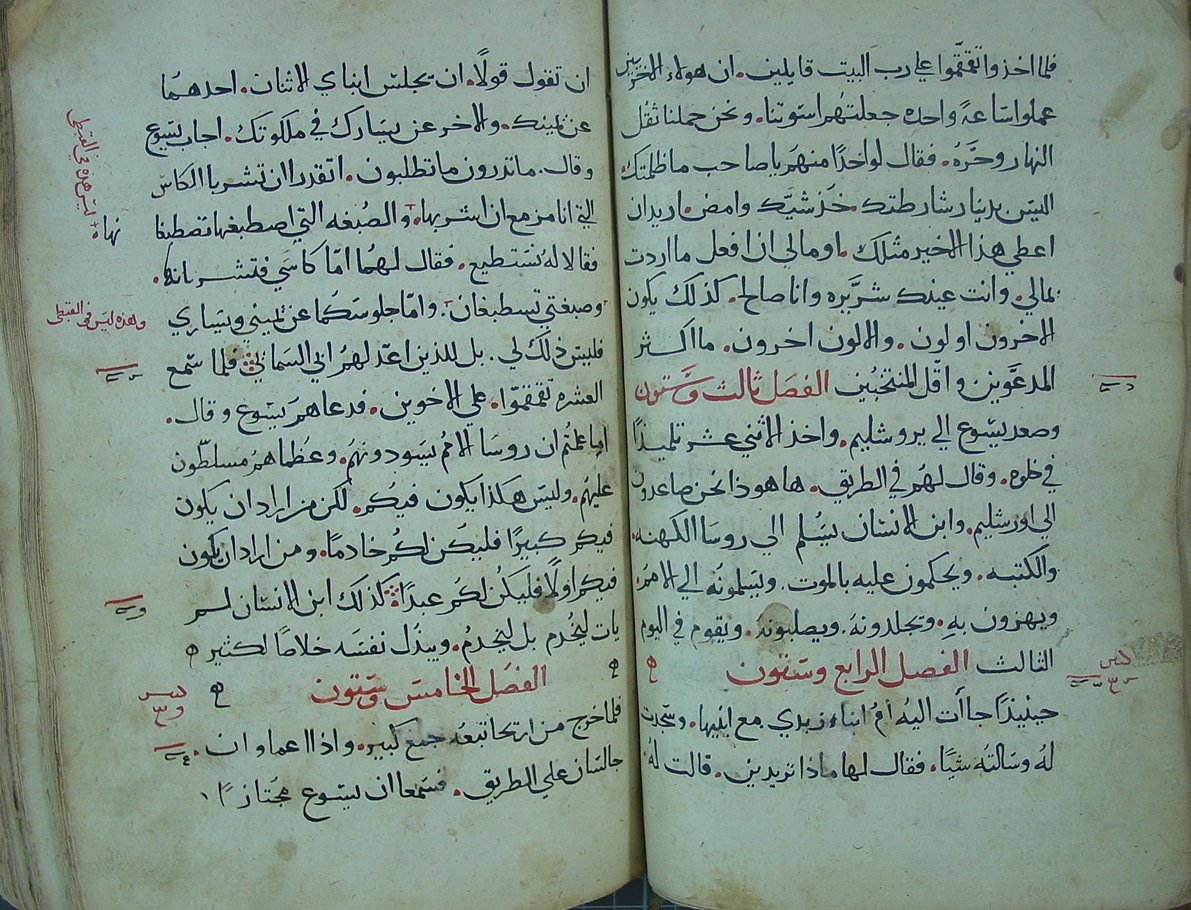 فلما اخذوا تقمقموا علي رب البيت قايلين. ان هولاء الاخرين
عملوا ساعةً واحده جعلتهُم اسوتنا. ونحن حملنا ثقل
النهار وحَرَّهُ. فقال لواحدًا منهم يا صاحب ما ظلمتك
اليس بدينار شارطتك. خذ شيَّك وامض. اريد ان
اعطي هذا الاخير مثلك. او ما لي ان افعل ما اردت
بمالي. وانت عينك شرَّيره وانا صالح. كذلك يكون
الاخرون اولون. والاولون اخرون. ما اكثر
المدعَوين واقل المنتخبين الفصل ثالث وستون
وصعد يسوع الي يروشليم. واخذ الاثني عشر تلميذًا
في خلوه. وقال لهُم في الطريق. ها هوذا نحن صاعدون
الي اورشليم. وابن الانسان يسُلم الي روسَا الكهنه.
والكتبه. ويحكمون عليه بالموت. ويسلمونُه الي الامم.
ويهزون بهِ. ويجلدونهُ. ويصلبونهُ. ويقوم في اليوم
الثالث الفصل الرابع وستون
حينيذًا جاأت اليهُ اُمُ ابناء زبدي مع ابنيها. وسجدت
لهُ وسالتهُ شيًا. فقال لها ماذا تريدين. قالت لهُ.
ان تقول قولًا. ان يجلس ابناي الاثنان. احدهمُا
عن يمينك. والاخر عن يسارك في ملكوتك. اجاب يسوع
وقال. ما تدرون ما تطلبون. اتقدران ان تشربا الكاس
التي انا مزمع ان اشربها. والصُبغه التي اصطبغها تصطبغا
نها.
ليس هذه في القبطي
فقالا لهُ نستطيع. فقال لهُما امّا كاسَي فتشربانها.
وصبغتي تسطبغان. وامّا جلوسَكُما عن يميني ويسَاري
وهذه ليس في القبطي
فليس ذلك لي. بل للذين اعَد لهم ابي السمايي فلما سمع
العشره تقمقموا. علي الاخوين. فدعاهم يسوع وقال.
اما علمتُم ان روسَا الامُم يسَودونهُم. وعظماهُم مسلطّون
عليهُم. وليس هكذا يكون فيكُم. لكن من اراد ان يكون
فيكم كبيرًا فليكن لكم خادمًا. ومن اراد ان يكون
فيكم اولًا فليكنُ لكُم عبدًا كذلك ابن الانسان لم
يات ليُخدم بل ليَخدمُ. ويبذُل نفسَه خلاصًا لكثير
الفصل الخامس وستون
فلما خرج من اريحا تبعُه جمع كبير. واذا اعماوان.
جالسَان علي الطريق. فسَمعا ان يسوع مجتازًا